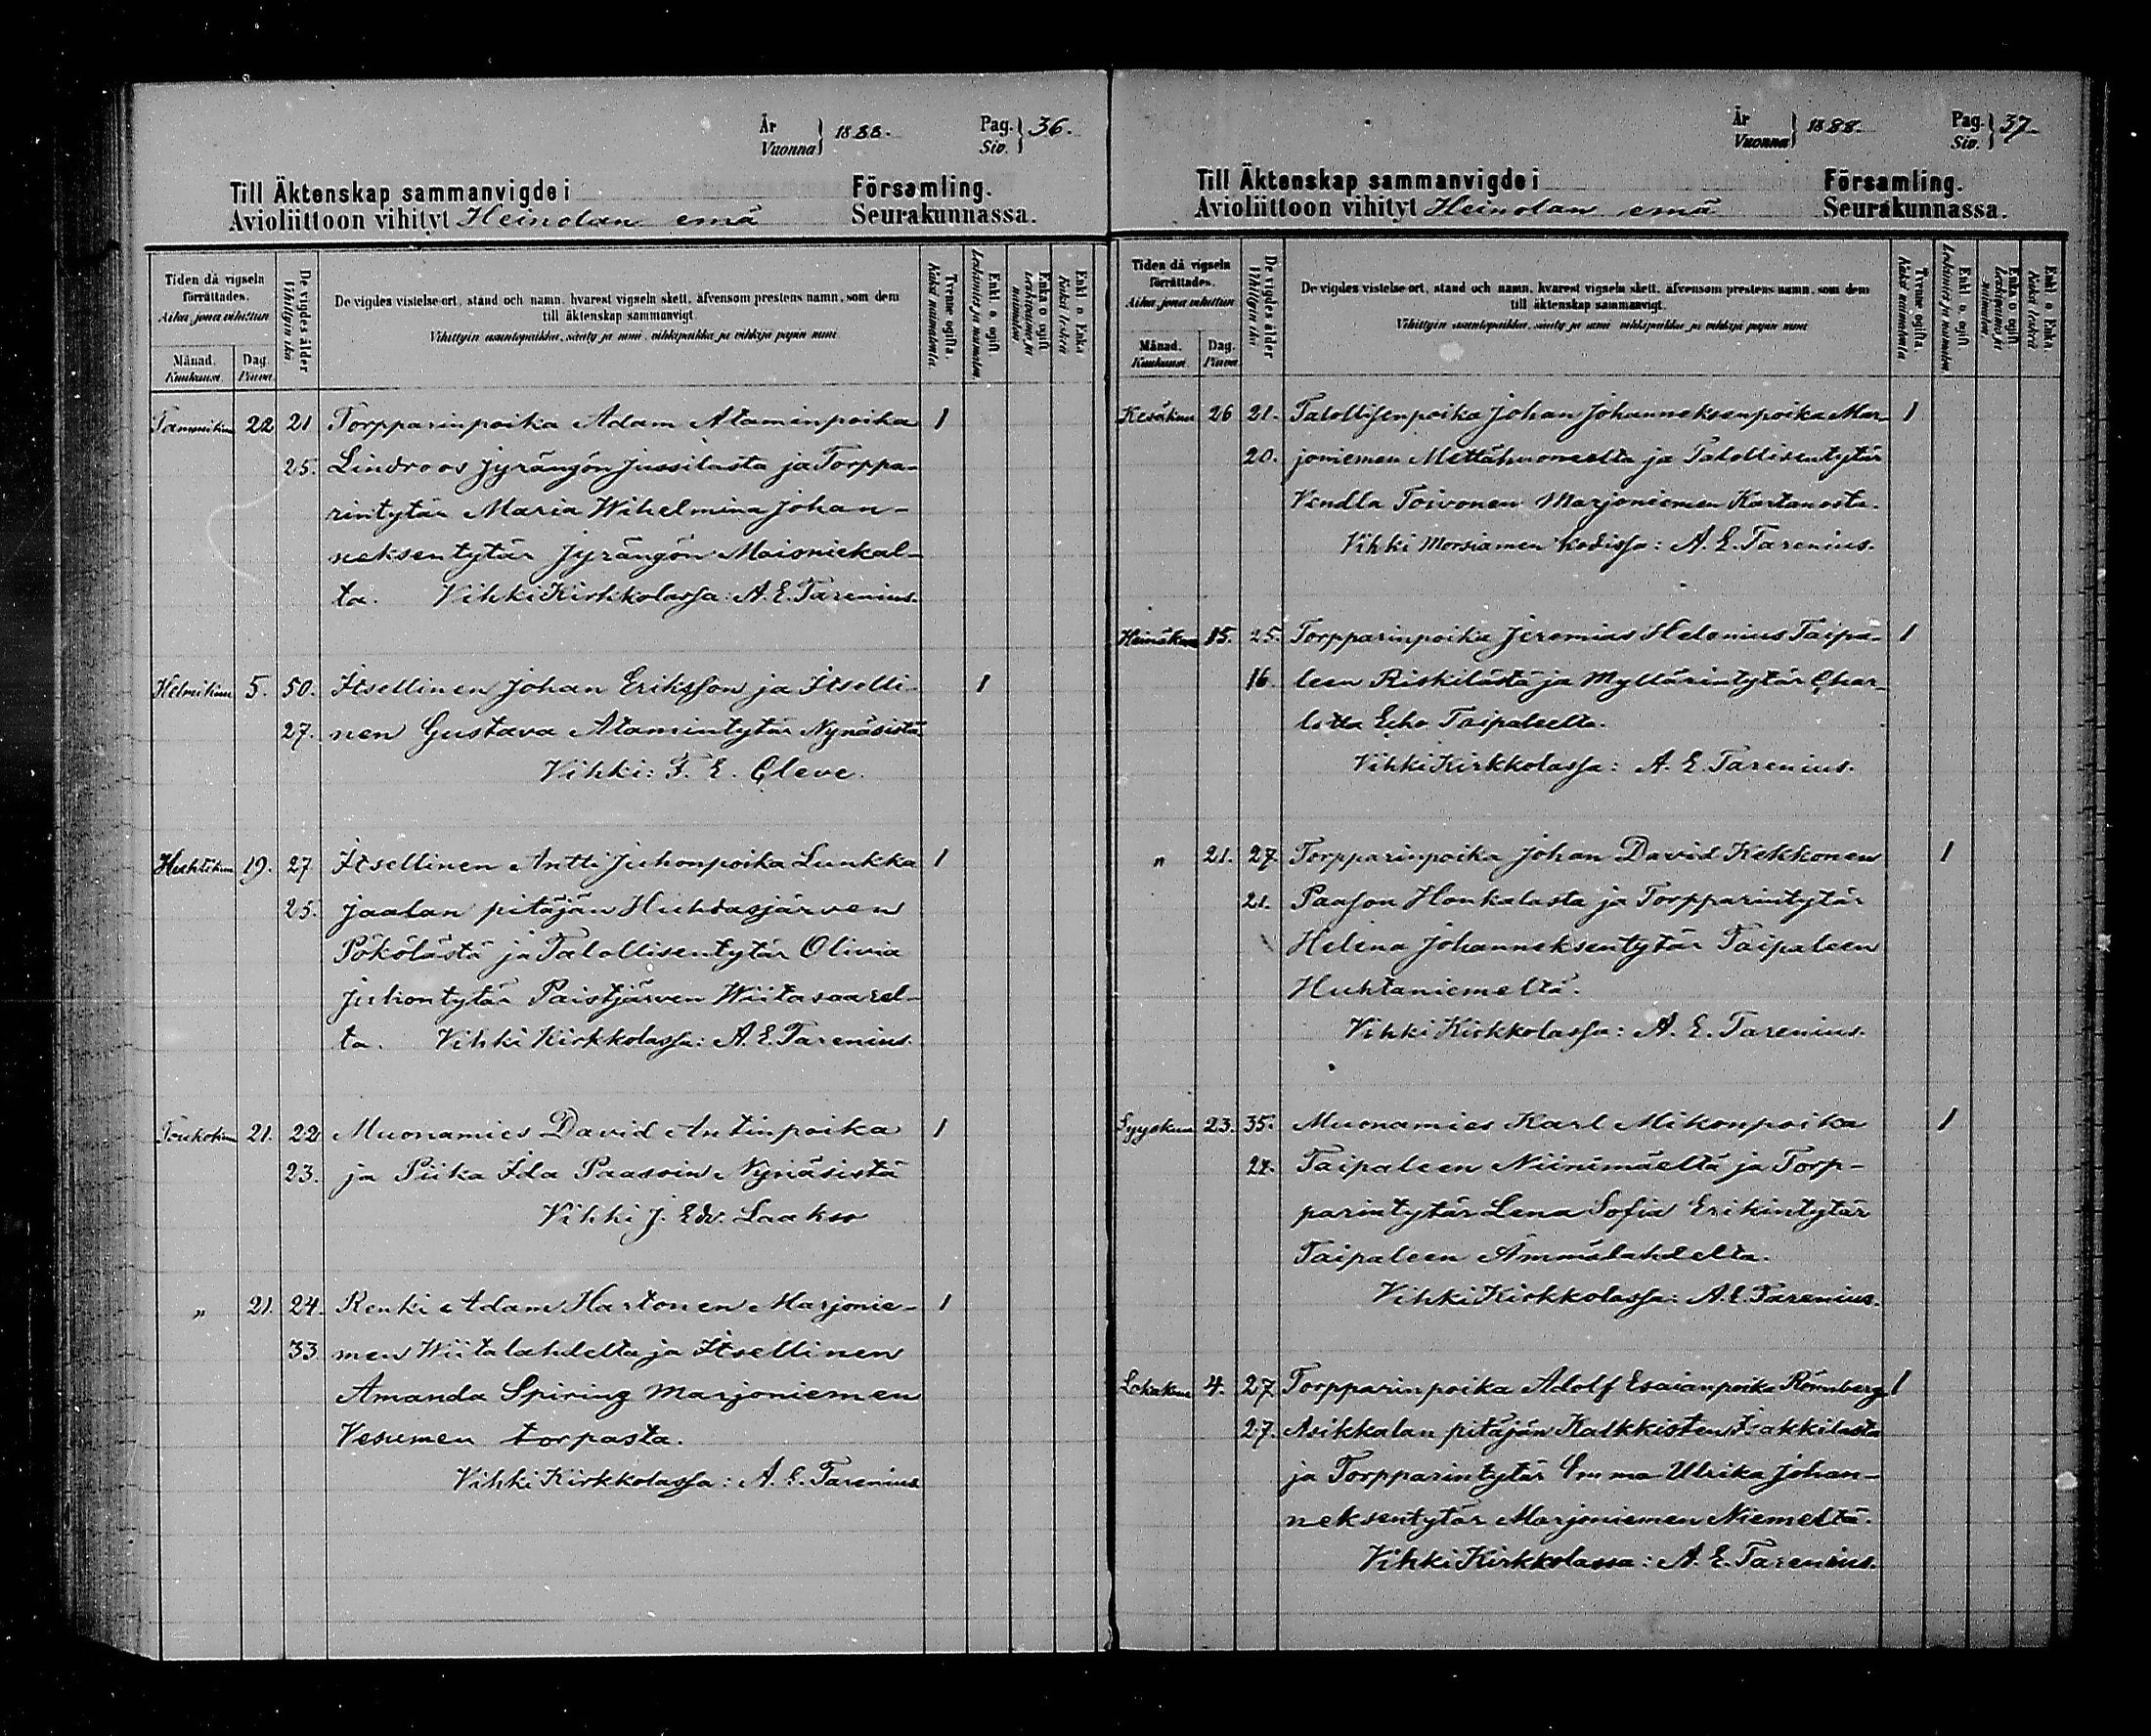 År
Vuonna } 1888.
Pag.
Siv. } 36.
Till Äktenskap sammanvigde i Församling.
Avioliittoon vihityt Heinolan emä Seurakunnassa.
Tiden då vigseln
förrättades.
Aika, jona vihittiin
Månad.
Kuukausi.
Dag.
Päivä.
De vigdes ålder
Vihittyin ikä
De vigdes vistelse ort, stånd och namn, hvarest vigseln skett, äfvensom prestens namn, som dem
till äktenskap sammanvigt.
Vihittyin asuntopaikka, sääty ja nimi, vihkipaikka ja vihkijä papin nimi
Tvenne ogifta.
Kaksi naimatonta.
Enkl. o. ogift.
Leskimies ja naimaton.
Enka o. ogift
Leskivaimo ja
naimaton
Enkl. o. Enka
Kaksi leskeä
Tammikuu 22 21 Torpparinpoika Adam Ataminpoika 1
25. Lindroos Jyrängön Jussilasta ja Torppa-
rintytär Maria Wihelmina Johan-
neksentytär Jyrängön Maisniekal-
ta. Vihki Kirkkolassa: A. E. Tarenius.
Helmikuu 5. 50. Itsellinen Johan Eriksson ja Itselli- 1
27. nen Gustava Atamintytär Nynäsistä
Vihki: F. E. Cleve.
Huhtikuu 19. 27 Itsellinen Antti Juhonpoika Lunkka 1
25. Jaalan pitäjän Huhdasjärven
Pökölästä ja Talollisentytär Olivia
Juhontytär Paistjärven Wiitasaarel-
ta. Vihki Kirkkolassa: A. E. Tarenius.
Toukokuu 21. 22 Muonamies David Antinpoika 1
23. ja Piika Ida Paasoin Nynäsistä
Vihki J. Edv. Laakso
" 21. 24. Renki Adam Hartonen Marjonie- 1
33. men Wiitalahdelta ja Itsellinen
Amanda Spiring Marjoniemen
Vesumen torpasta.
Vihki Kirkkolassa: A. E. Tarenius
År
Vuonna } 1888.
Pag.
Siv. } 37.
Till Äktenskap sammanvigde i Församling.
Avioliittoon vihityt Heinolan emä Seurakunnassa.
Tiden då vigseln
förrättades.
Aika, jona vihittiin
Månad.
Kuukausi.
Dag.
Päivä.
De vigdes ålder
Vihittyin ikä
De vigdes vistelse ort, stånd och namn, hvarest vigseln skett, äfvensom prestens namn, som dem
till äktenskap sammanvigt.
Vihittyin asuntopaikka, sääty ja nimi, vihkipaikka ja vihkijä papin nimi
Tvenne ogifta.
Kaksi naimatonta
Enkl. o. ogift
Leskimies ja naimaton
Enka o. ogift
Leskivaimo ja
naimaton.
Enkl. o. Enka.
Kaksi leskeä
Kesäkuu 26 21. Talollisenpoika Johan Johanneksenpoika Mar- 1
20. joniemen Mettähuoneelta ja Talollisentytär
Vendla Toivonen Marjoniemen Kartanosta.
Vihki Morsiamen kodissa: A. E. Tarenius.
Heinäkuu 15. 25. Torpparinpoika Jeremias Helenius Taipa- 1
16. leen Riskilästä ja Myllärintytär Char-
lotta Echo Taipaleelta.
Vihki Kirkkolassa: A. E. Tarenius.
" 21. 27 Torpparinpoika Johan David Kekkonen 1
21. Paason Honkalasta ja Torpparintytär
Helena Johanneksentytär Taipaleen
Huhtaniemeltä.
Vihki Kirkkolassa: A. E. Tarenius.
Syyskuu 23. 35. Muonamies Karl Mikonpoika 1
24. Taipaleen Niinimäeltä ja Torp-
parintytär Lena Sofia Erikintytär
Taipaleen Ämmälahdelta.
Vihki Kirkkolassa: A. E. Tarenius.
Lokakuu 4. 27 Torpparinpoika Adolf Esaianpoika Rönnberg 1
27. Asikkalan pitäjän Kalkkisten
ja Torpparintytär Emma Ulrika Johan-
neksentytär Marjoniemen Niemeltä.
Vihki Kirkkolassa: A. E. Tarenius.